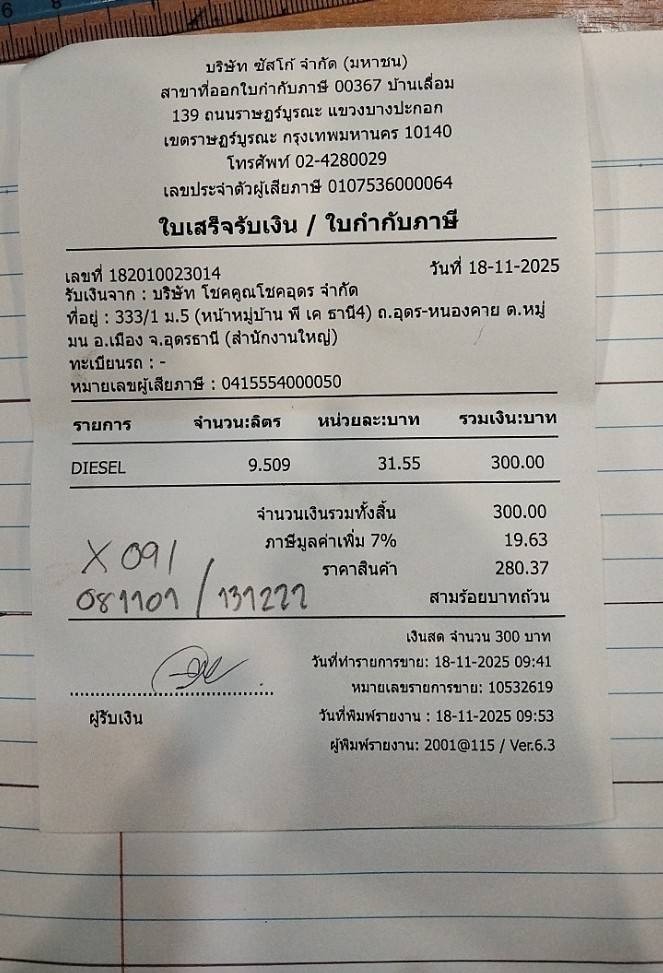 บริษัท ซัสโก้ จำกัด (มหาชน)
สาขาที่ออกใบกำกับภาษี 00367 บ้านเลื่อม
139 ถนนราษฎร์บูรณะ แขวงบางปะกอก
เขตราษฎร์บูรณะ กรุงเทพมหานคร 10140
โทรศัพท์ 02-4280029
เลขประจำตัวผู้เสียภาษี 0107536000064
ใบเสร็จรับเงิน / ใบกำกับภาษี
เลขที่ 182010023014 วันที่ 18-11-2025
รับเงินจาก : บริษัท โชคคูณโชคอุดร จำกัด
ที่อยู่ : 333/1 ม.5 (หน้าหมู่บ้าน พี เค ธานี4) ถ.อุดร-หนองคาย ต.หมู่
มน อ.เมือง จ.อุดรธานี (สำนักงานใหญ่)
ทะเบียนรถ : -
หมายเลขผู้เสียภาษี : 0415554000050
รายการ จำนวน:ลิตร หน่วยละ:บาท รวมเงิน:บาท
DIESEL 9.509 31.55 300.00
จำนวนเงินรวมทั้งสิ้น 300.00
ภาษีมูลค่าเพิ่ม 7% 19.63
X 091
ราคาสินค้า 280.37
081101 / 131222
สามร้อยบาทถ้วน
เงินสด จำนวน 300 บาท
วันที่ทำรายการขาย: 18-11-2025 09:41
หมายเลขรายการขาย: 10532619
ผู้รับเงิน วันที่พิมพ์รายงาน : 18-11-2025 09:53
ผู้พิมพ์รายงาน: 2001@115 / Ver.6.3